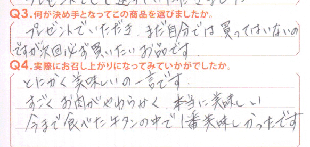 Q3.何が決め手となってこの商品を選びましたか。
プレゼントでいただき、まだ自分では買ってはいないの
ですが次回必ず買いたいお品です。
Q4.実際にお召し上がりになってみていかがでしたか。
とにかく美味しいの一言です
すごくお肉がやわらかく本当に美味しい
今まで食べた牛タンの中で1番美味しかったです